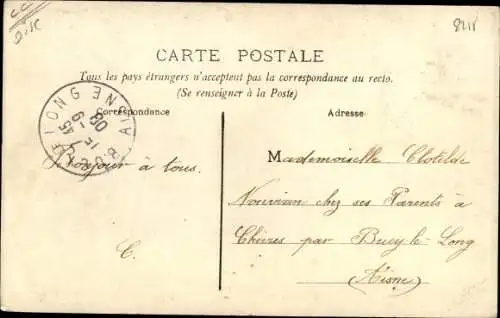 CARTE POSTALE
Tous les pays étrangers n'acceptent pas la correspondance au recto.
(Se renseigner à la Poste)
Correspondance
Adresse
Bonjour à tous.
C.
Mademoiselle Clotilde
chez ses Parents à
Chivres par Bucy-le-Long
(Aisne)
8218